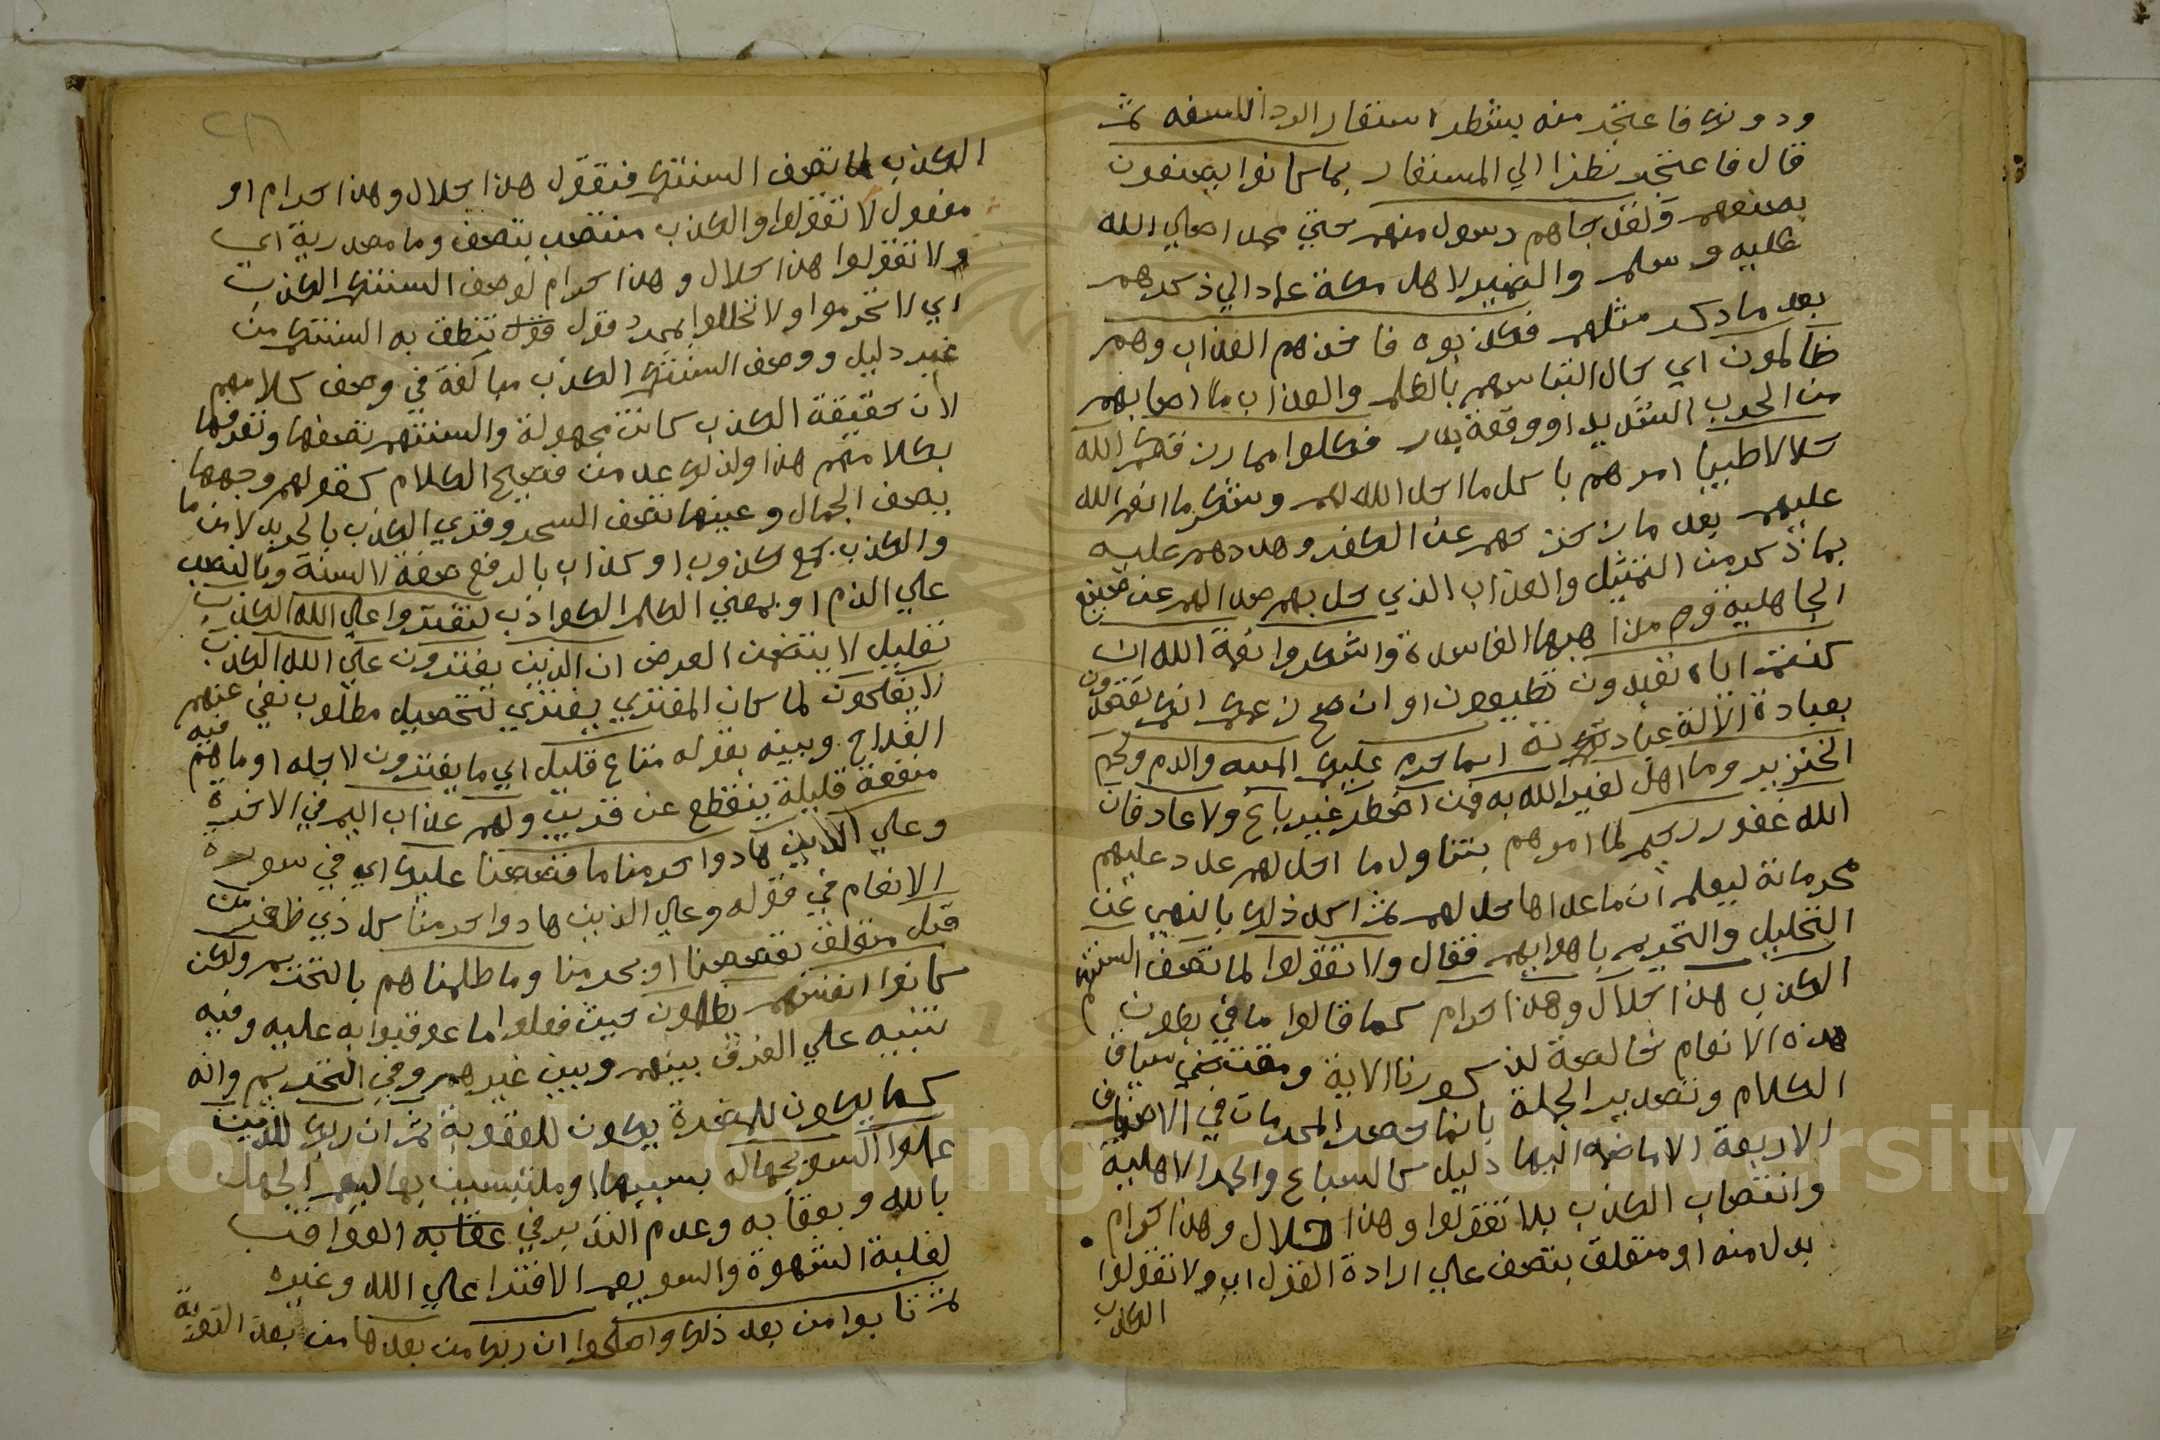 ودونه فاعتجر منه بشطر استعار الردا للسفه ثم
قال فاعتجر نظرا الي المستعار بما كانوا يصنعون
بصنعهم ولقد جاهم رسول منهم يعني محمدا صلي الله
عليه وسلم والضمير لاهل مكة عاد الي ذكرهم
بعد ما ذكر مثلهم فكذبوه فاخذهم العذاب وهم
ظالمون اي حال التباسهم بالظلم والعذاب ما اصابهم
من الجدب الشديد او وقعة بدر فكلوا مما رزقكم الله
حلالا طيبا امرهم باكل ما احل الله لهم وشكر ما انعم الله
عليهم بعد ما زجرهم عن الكفر وهددهم عليه
بما ذكر من التمثيل والعذاب الذي حل بهم صدا لهم عن صنيع
الجاهلية ومذاهبها الفاسدة واشكروا نعمة الله ان
كنتم اياه تعبدون تطيعون او ان صح زعمكم انكم تقصدون
بعبادة الالهة عبادته انما حرم عليكم الميتة والدم ولحم
الخنزير وما اهل لغير الله به فمن اضطر غير باغ ولا عاد فان
الله غفور رحيم لما امرهم بتناول ما احل لهم عدد عليهم
محرماته ليعلم ان ما عداها حل لهم ثم اكد ذلك بالنهي عن
التحليل والتحريم باهوايهم فقال ولا تقولوا لما تصف السنتكم
الكذب هذا حلال وهذا حرام كما قالوا ما في بطون
هذه الانعام خالصة لذكورنا الاية ومقتضي سياق
الكلام وتصدير الجملة بانما حصر المحرمات في الاجناس
الاربعة الا ما ضم اليها دليل كالسباع والحمر الاهلية
وانتصاب الكذب بلا تقولوا وهذا حلال وهذا حرام
بدل منه او متعلق بتصف علي ارادة القول اي ولا تقولوا
الكذب
الكذب لما تصف السنتكم فتقول هذا حلال وهذا حرام او
مفعول لا تقولوا والكذب منتصب بتصف وما مصدرية اي
ولا تقولوا هذا حلال وهذا حرام لوصف السنتكم الكذب
اي لا تحرموا ولا تحللوا بمجرد قول تنطق به السنتكم من
غير دليل ووصف السنتهم الكذب مبالغة في وصف كلامهم
لان حقيقة الكذب كانت مجهولة والسنتهم تصفها وتعرفها
بكلامهم هذا ولذلك عد من فصيح الكلام كقولهم وجهها
يصف الجمال وعينها تصف السحر وقري الكذب بالجر بدلا من ما
والكذب جمع كذوب او كذاب بالرفع صفة لالسنة وبالنصب
علي الذم او بمعني الكلم الكواذب لتفتروا علي الله الكذب
تعليل لا يتضمن الغرض ان الذين يفترون علي الله الكذب
لا يفلحون لما كان المفتري يفتري لتحصيل مطلوب نفي عنهم
الفلاح وبينه بقوله متاع قليل اي ما يفترون لاجله او ما هم فيه
منفعة قليلة ينقطع عن قريب ولهم عذاب اليم في الاخرة
وعلي الذين هادوا حرمنا ما قصصنا عليك اي في سورة
الانعام في قوله وعلي الذين هادوا حرمنا كل ذي ظفر من
قبل متعلق بقصصنا او بحرمنا وما ظلمناهم بالتحريم ولكن
كانوا انفسهم يظلمون حيث فعلوا ما عوقبوا به عليه وفيه
تنبيه علي الفرق بينهم وبين غيرهم وفي التحريم وانه
كما يكون للمضرة يكون للعقوبة ثم ان ربك للذين
عملوا السو بجهالة بسببها او ملتبسين بها ليعم الجهل
بالله وبعقابه وعدم التدبر في عقابه العواقب
لغلبة الشهوة والسو يعم الافترا علي الله وغيره
ثم تابوا من بعد ذلك واصلحوا ان ربك من بعدها من بعد التوبة
Copyright © King Saud University